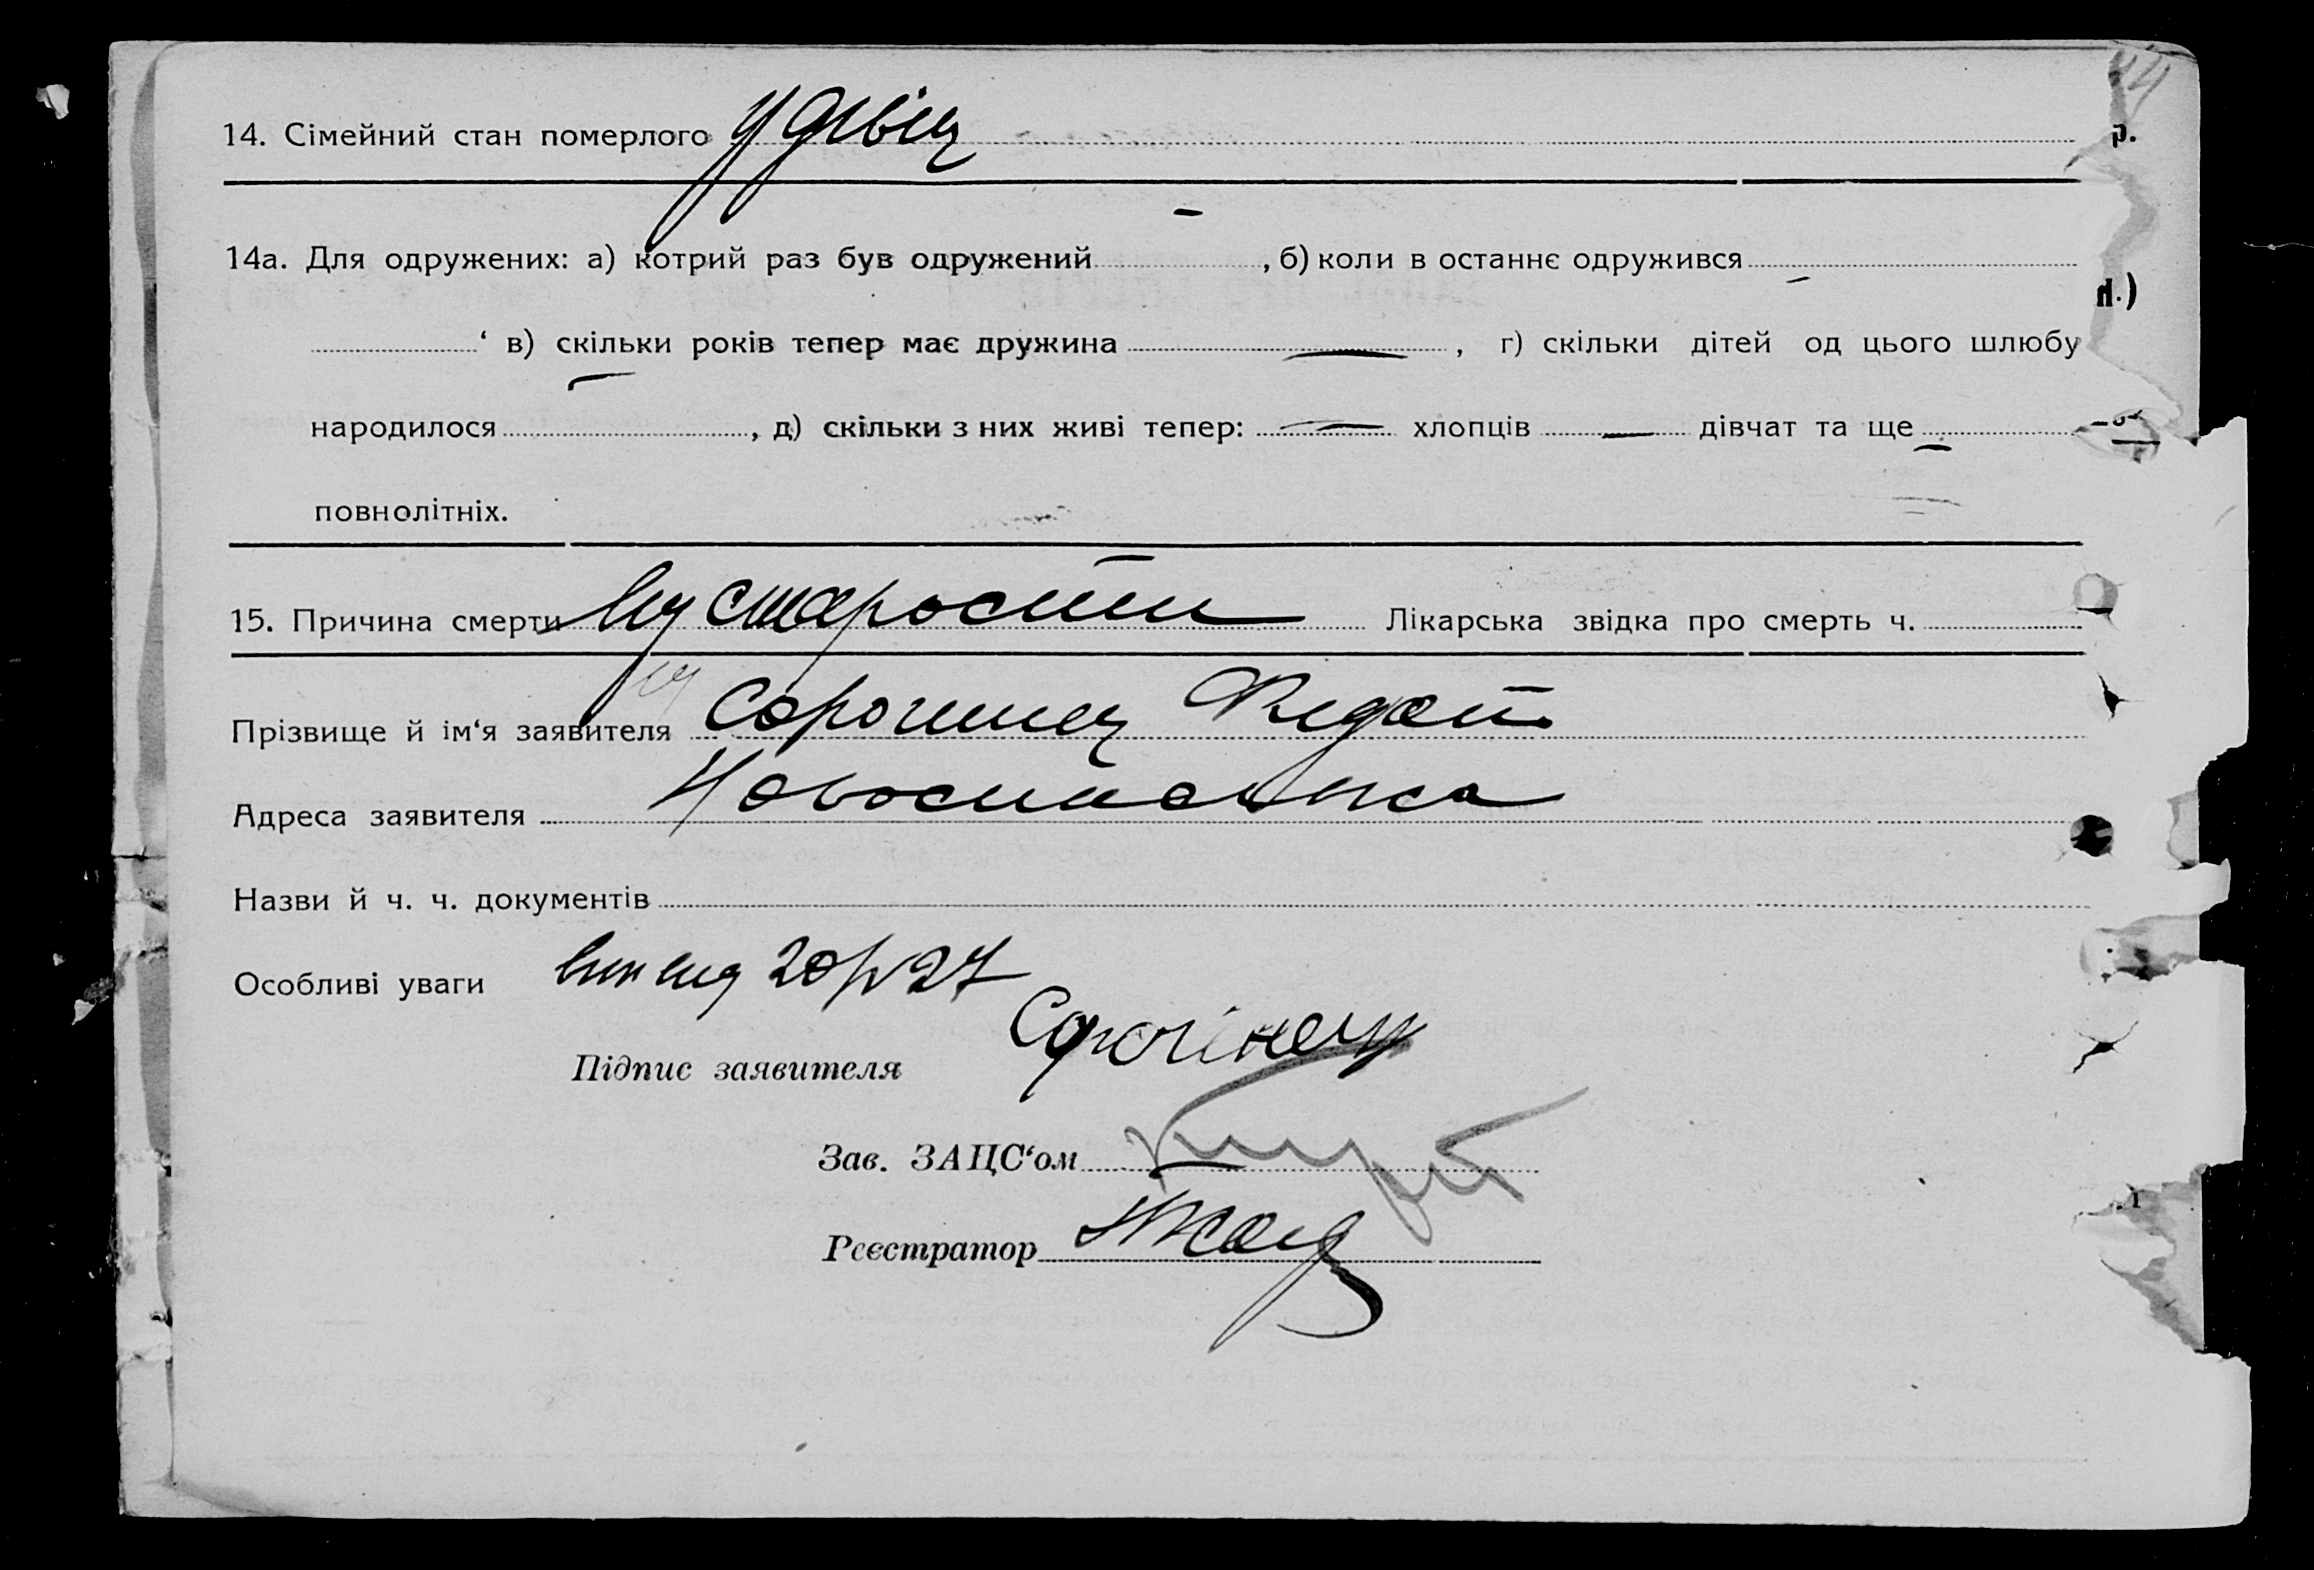 14. Сімейний стан померлого удівец
р.
14а. Для одружених: а) котрий раз був одружений — , б) коли в останнє одружився —
‘ в) скільки років тепер має дружина — , г) скільки дітей од цього шлюбу
народилося — , д) скільки з них живі тепер: — хлопців — дівчат та ще —
повнолітніх.
15. Причина смерти від старости Лікарська звідка про смерть ч.
Прізвище й ім‘я заявителя Сорочинец Федот
Адреса заявителя
Назви й ч. ч. документів
Особливі уваги
Підпис заявителя Сорочінец
Зав. ЗАЦС‘ом
Реєстратор